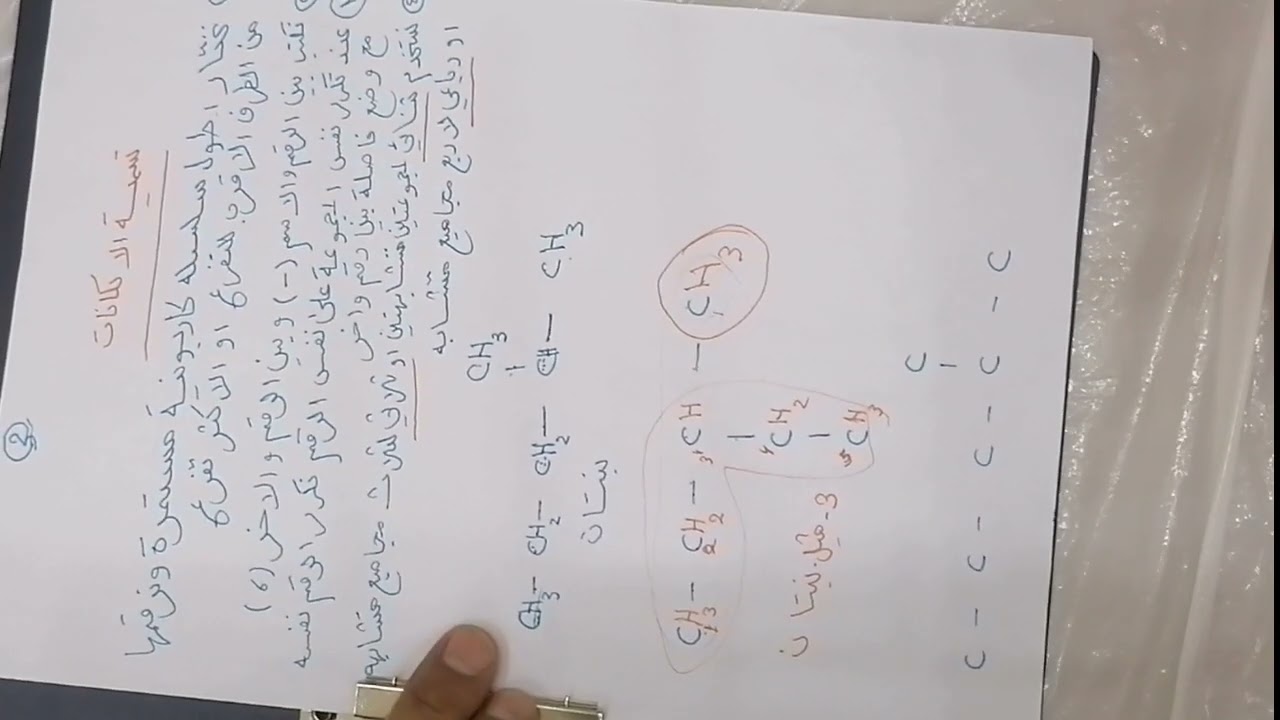 ②
تسمية الالكانات
① نختار اطول سلسلة كاربونية مستمرة ونرقمها
من الطرف الاقرب للتفرع او الاكثر تفرع
نكتب بين الرقم والاسم (-) وبين الرقم والاخر (,)
عند تكرار نفس المجموعة على نفس الرقم نكرر الرقم نفسه
مع وضع فاصلة بين رقم واخر
④ نستخدم ثنائي لمجموعتين متشابهتين او ثلاثي لثلاث مجاميع متشابهه
او رباعي لاربع مجاميع متشابه
CH3
CH3 – CH2 – CH2 – CH – CH3
بنتان
1CH3 – 2CH2 – 3CH – CH3
4CH2
5CH3
3-مثيل بنتان
C
C – C – C – C – C